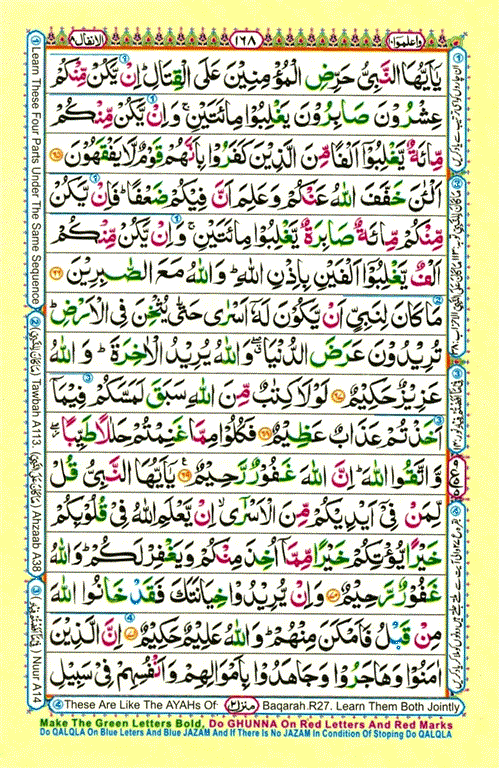 الانفال ٨
١٦٨
واعلموا ١٠
يٰۤاَيُّهَا النَّبِىُّ حَرِّضِ الْمُؤْمِنِيْنَ عَلَى الْقِتَالِ ؕ اِنْ يَّكُنْ مِّنْكُمْ
عِشْرُوْنَ صَابِرُوْنَ يَغْلِبُوْا مِائَتَيْنِ ۚ وَاِنْ يَّكُنْ مِّنْكُمْ
مِّائَةٌ يَّغْلِبُوْۤا اَلْفًا مِّنَ الَّذِيْنَ كَفَرُوْا بِاَنَّهُمْ قَوْمٌ لَّا يَفْقَهُوْنَ ﴿٦٥﴾
اَلْـٰٔنَ خَفَّفَ اللّٰهُ عَنْكُمْ وَعَلِمَ اَنَّ فِيْكُمْ ضَعْفًا ؕ فَاِنْ يَّكُنْ
مِّنْكُمْ مِّائَةٌ صَابِرَةٌ يَّغْلِبُوْا مِائَتَيْنِ ۚ وَاِنْ يَّكُنْ مِّنْكُمْ
اَلْفٌ يَّغْلِبُوْۤا اَلْفَيْنِ بِاِذْنِ اللّٰهِ ؕ وَاللّٰهُ مَعَ الصّٰبِرِيْنَ ﴿٦٦﴾
مَا كَانَ لِنَبِىٍّ اَنْ يَّكُوْنَ لَهٗۤ اَسْرٰى حَتّٰى يُثْخِنَ فِى الْاَرْضِ ؕ
تُرِيْدُوْنَ عَرَضَ الدُّنْيَا ۖ وَاللّٰهُ يُرِيْدُ الْاٰخِرَةَ ؕ وَاللّٰهُ
عَزِيْزٌ حَكِيْمٌ ﴿٦٧﴾ لَوْلَا كِتٰبٌ مِّنَ اللّٰهِ سَبَقَ لَمَسَّكُمْ فِيْمَاۤ
اَخَذْتُمْ عَذَابٌ عَظِيْمٌ ﴿٦٨﴾ فَكُلُوْا مِمَّا غَنِمْتُمْ حَلٰلًا طَيِّبًا ۖ
وَّاتَّقُوا اللّٰهَ ؕ اِنَّ اللّٰهَ غَفُوْرٌ رَّحِيْمٌ ﴿٦٩﴾ يٰۤاَيُّهَا النَّبِىُّ قُلْ
لِّمَنْ فِىْۤ اَيْدِيْكُمْ مِّنَ الْاَسْرٰٓى ۙ اِنْ يَّعْلَمِ اللّٰهُ فِىْ قُلُوْبِكُمْ
خَيْرًا يُّؤْتِكُمْ خَيْرًا مِّمَّاۤ اُخِذَ مِنْكُمْ وَيَغْفِرْ لَكُمْ ؕ وَاللّٰهُ
غَفُوْرٌ رَّحِيْمٌ ﴿٧٠﴾ وَاِنْ يُّرِيْدُوْا خِيَانَتَكَ فَقَدْ خَانُوا اللّٰهَ
مِنْ قَبْلُ فَاَمْكَنَ مِنْهُمْ ؕ وَاللّٰهُ عَلِيْمٌ حَكِيْمٌ ﴿٧١﴾ اِنَّ الَّذِيْنَ
اٰمَنُوْا وَهَاجَرُوْا وَجَاهَدُوْا بِاَمْوَالِهِمْ وَاَنْفُسِهِمْ فِىْ سَبِيْلِ
① Learn These Four Parts Under The Same Sequence
② (مَا كَانَ لِلنَّبِيِّ) Tawbah A113, (مَا كَانَ عَلَى النَّبِيِّ) Ahzaab A38
③ Nuur A14
④ These Are Like The AYAHs Of منزل ٢ Baqarah.R27. Learn Them Both Jointly
Make The Green Letters Bold, Do GHUNNA On Red Letters And Red Marks
Do QALQLA On Blue Leters And Blue JAZAM And If There Is No JAZAM In Condition Of Stoping Do QALQLA